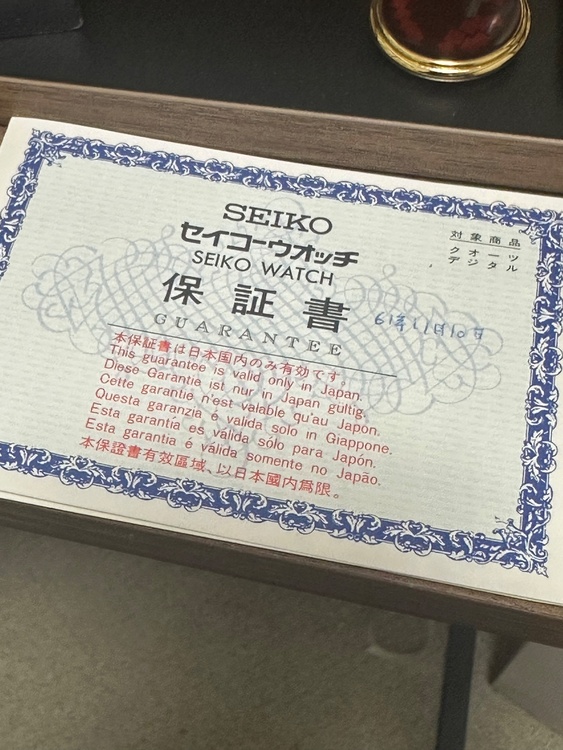 SEIKO
セイコーウオッチ
SEIKO WATCH
保証書
GUARANTEE
対象商品
クオーツ
デジタル
61年11月10日
本保証書は日本国内のみ有効です。
This guarantee is valid only in Japan.
Diese Garantie ist nur in Japan gültig.
Cette garantie n'est valable qu'au Japon.
Questa garanzia é valida solo in Giappone.
Esta garantía es válida sólo para Japón.
Esta garantia é válida somente no Japão.
本保證書有效區域、以日本國內爲限。